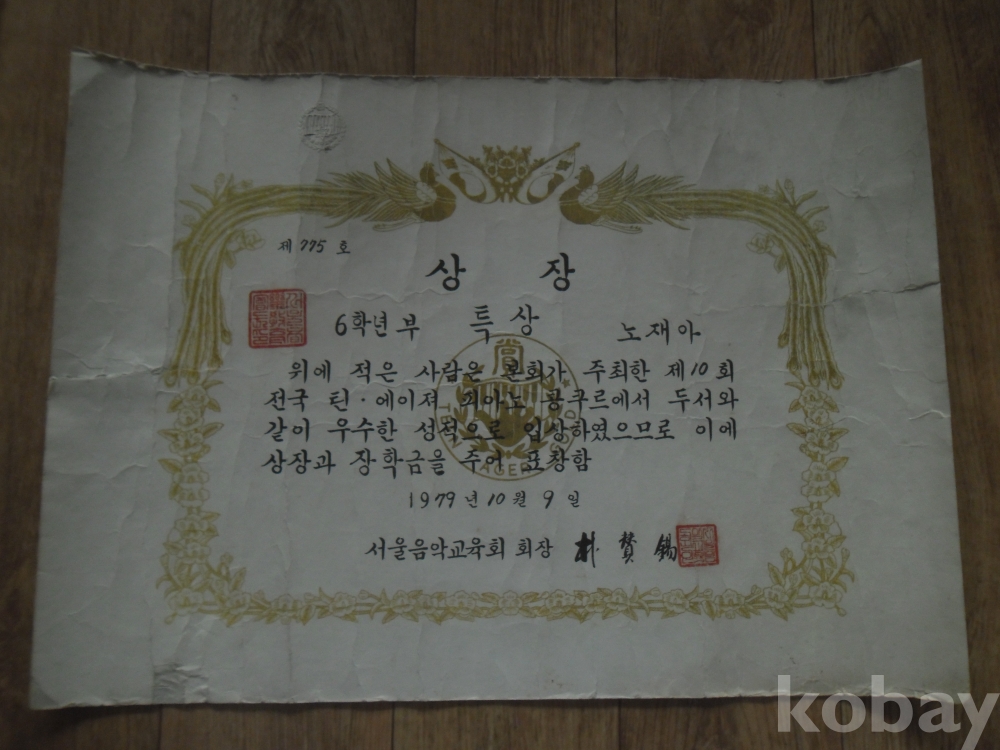 제 775 호
상 장
6학년부 특상 노재아
賞
위에 적은 사람은 본회가 주최한 제10회
전국 틴·에이져 피아노 콩쿠르에서 두서와
같이 우수한 성적으로 입상하였으므로 이에
상장과 장학금을 주어 표창함
TEEN AGER
1979년 10월 9일
서울음악교육회 회장 朴贊錫
kobay